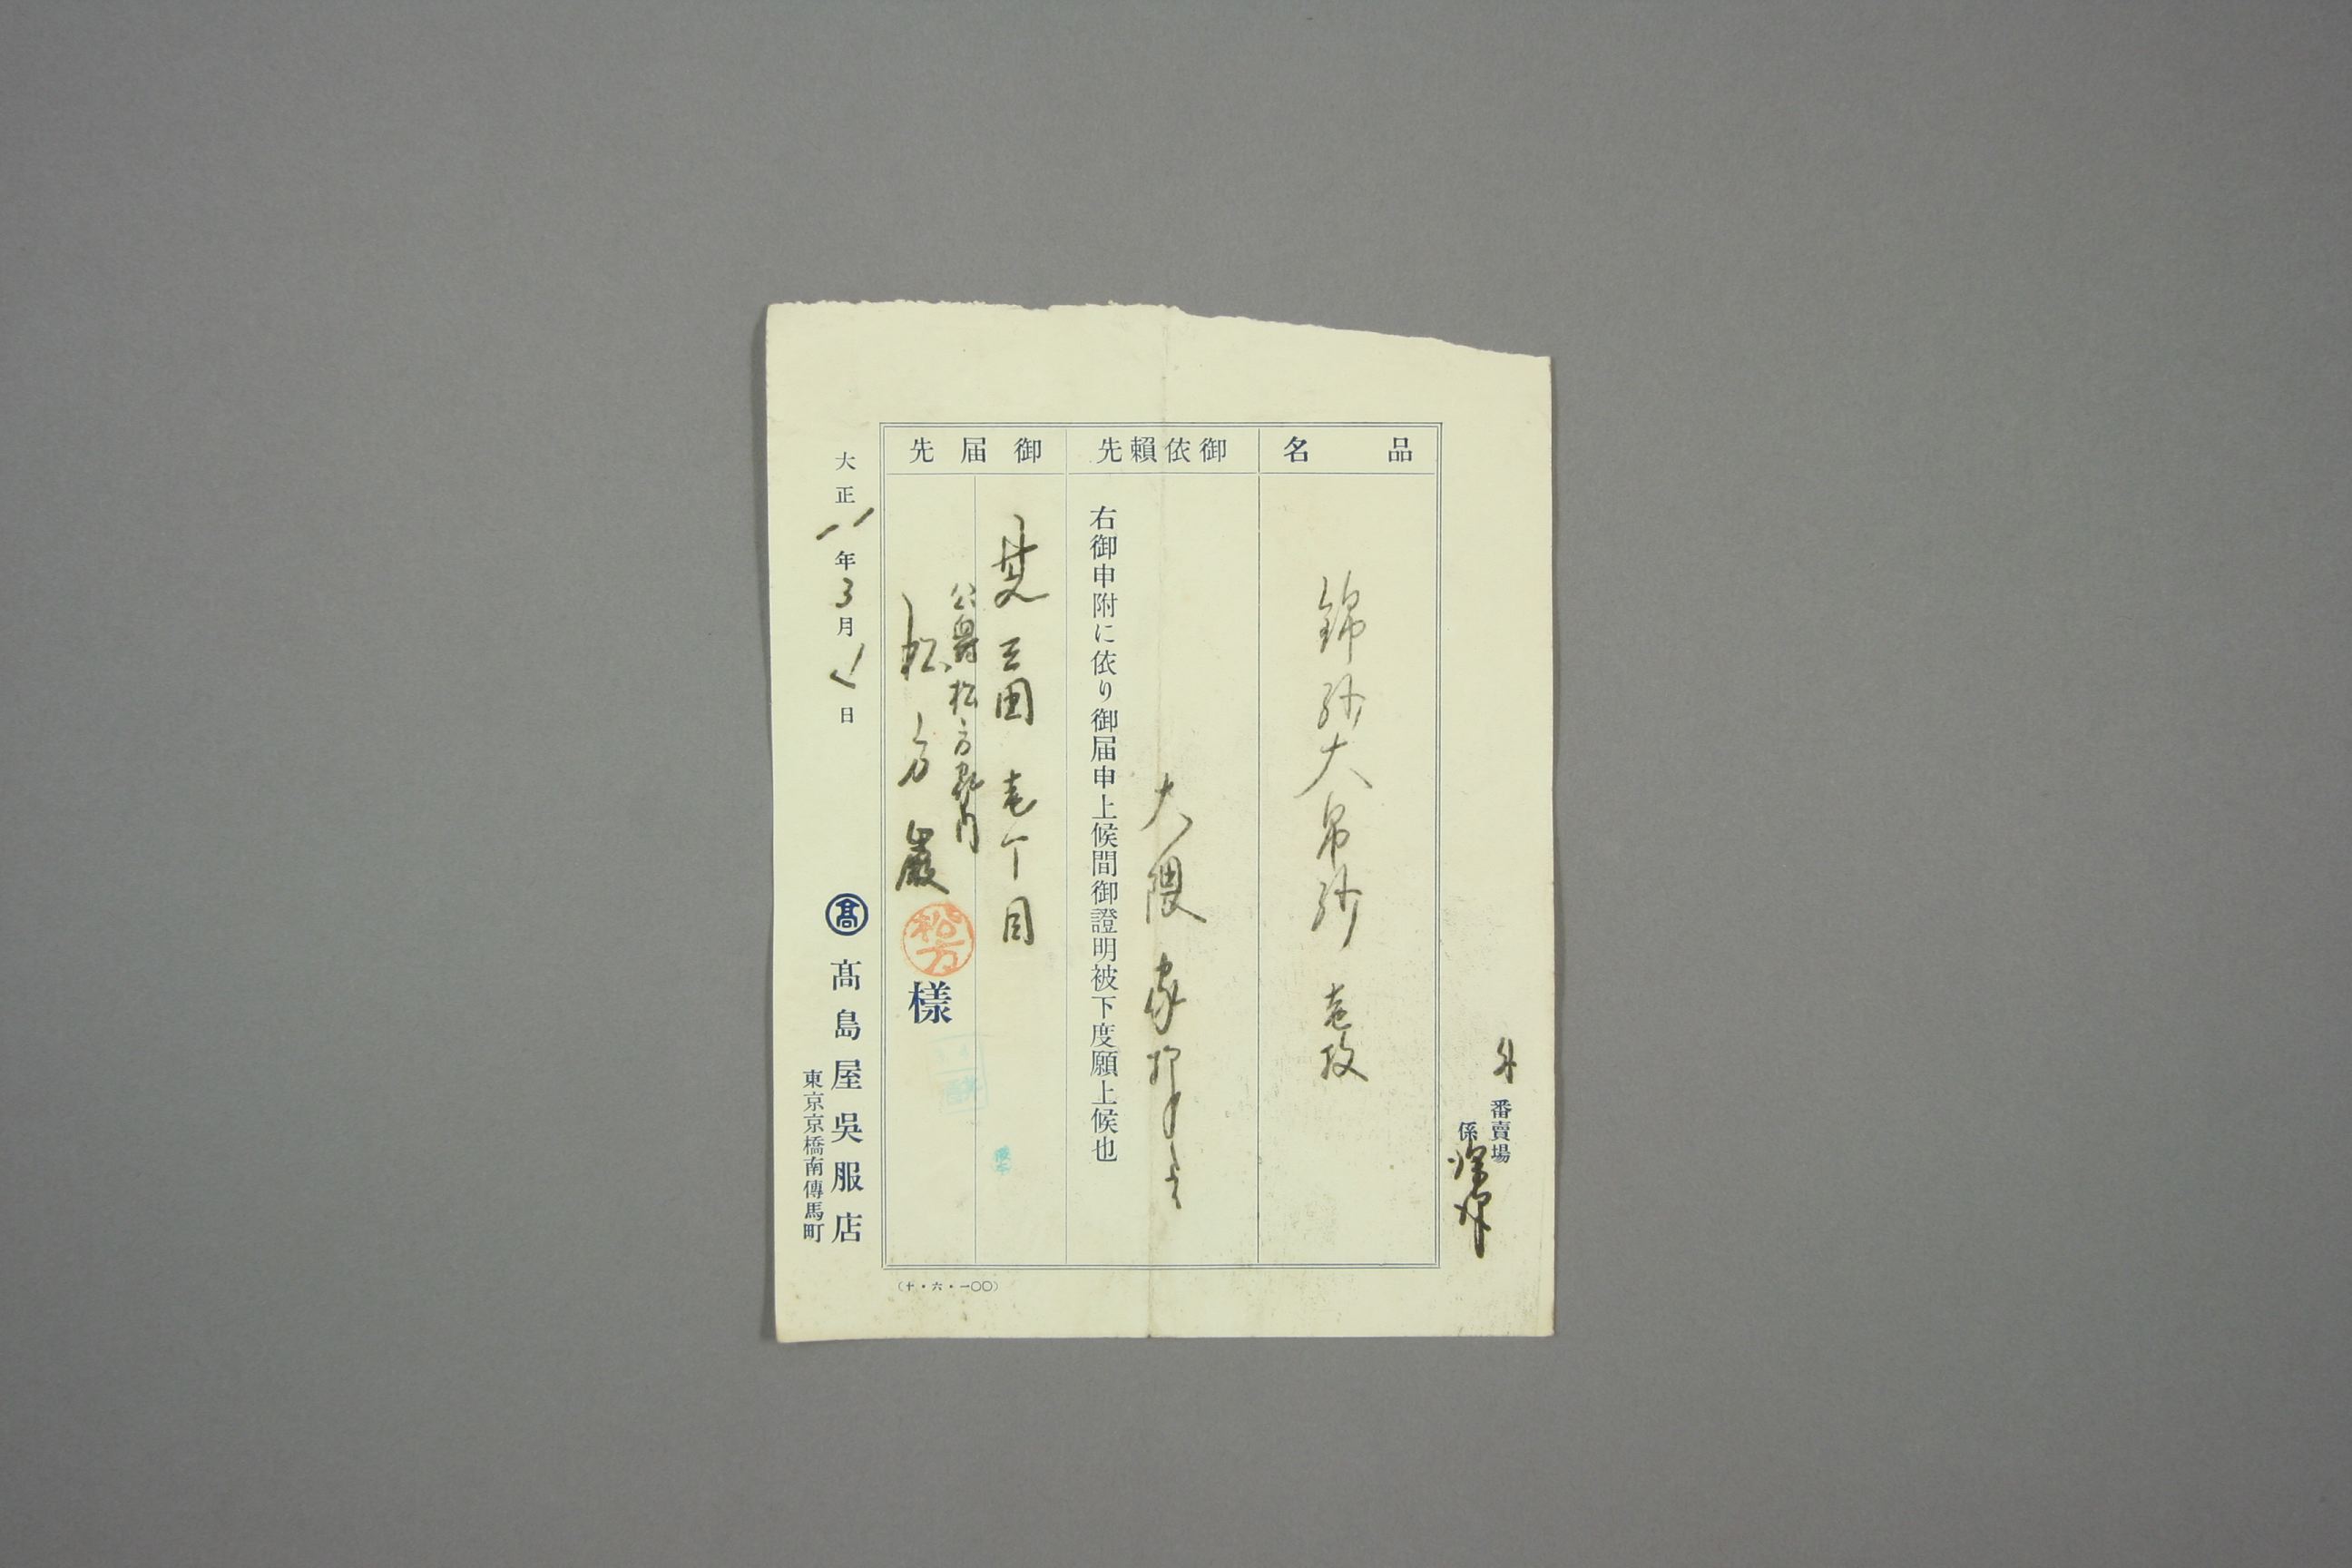 外番賣場
係
品名
錦紗大帛紗 壱枚
御依賴先
大隈家
右御申附に依り御届申上候間御證明被下度願上候也
御届先
芝 三田 壱丁目
公爵松方邸内
松方巌様
松方
大正11年3月 日
髙
髙島屋吳服店
東京京橋南傳馬町
(十・六・一〇〇)